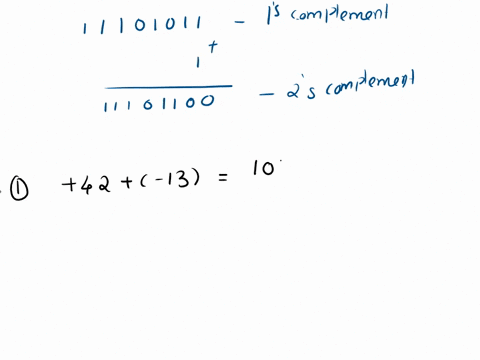 11101011 - 1's complement
1 +
11101100 - 2's complement
① +42 + (-13) = 10